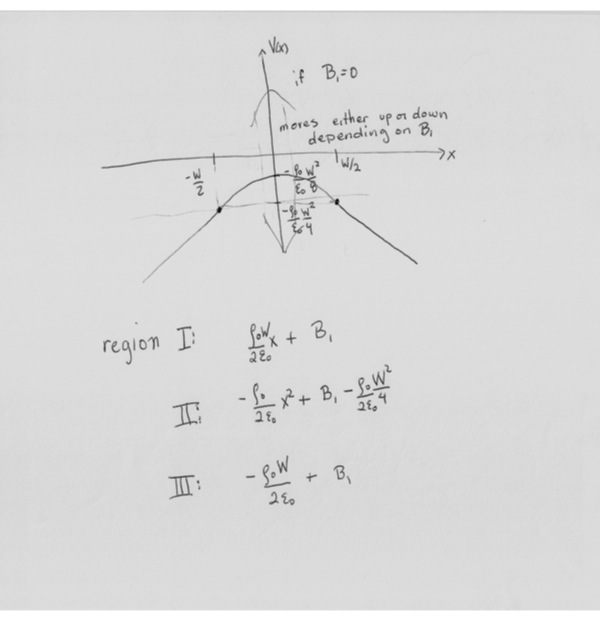 V(x)
if B₁=0
moves either up or down
depending on B₁
x
-W/2
W/2
-ρ₀W²/ε₀8
-ρ₀W²/ε₀4
region I: ρ₀W/2ε₀ x + B₁
II: -ρ₀/2ε₀ x² + B₁ - ρ₀W²/2ε₀4
III: -ρ₀W/2ε₀ + B₁